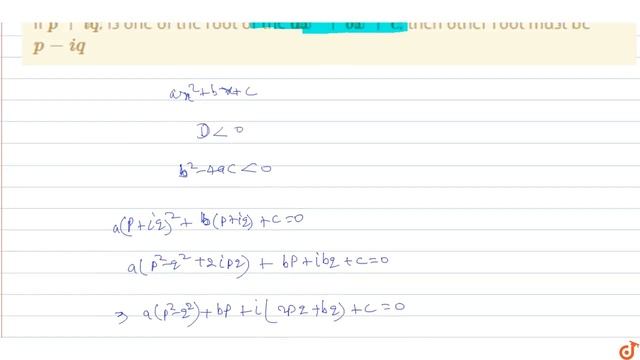 is one of the root of the then other root must be
p − iq
ax²+bx+c
D < 0
b²-4ac < 0
a(p+iq)²+ b(p+iq) + c = 0
a(p²-q²+2ipq) + bp+ibq+c=0
⇒ a(p²-q²)+bp+i(2pq+bq)+c=0